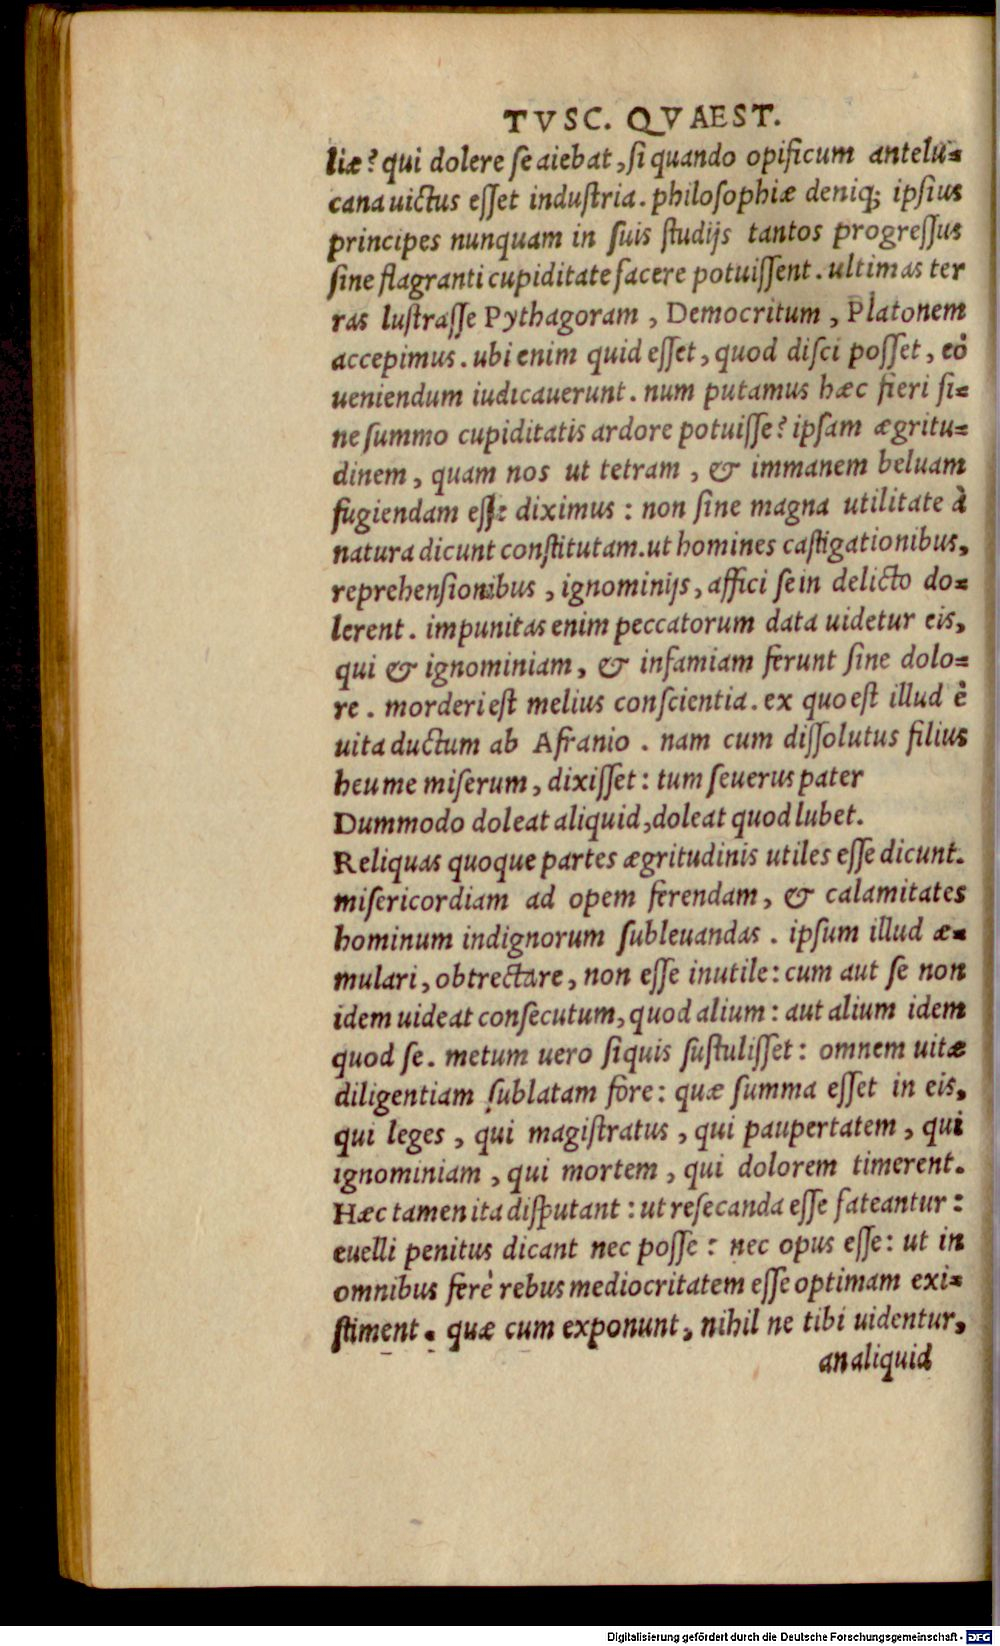 TVSC. QVAEST.
liæ? qui dolere ſe aiebat, ſi quando opificum antelu-
cana uictus eſſet induſtria. philoſophiæ deniq; ipſius
principes nunquam in ſuis ſtudijs tantos progreſſus
ſine flagranti cupiditate facere potuiſſent. ultimas ter
ras luſtraſſe Pythagoram, Democritum, Platonem
accepimus. ubi enim quid eſſet, quod diſci poſſet, eò
ueniendum iudicauerunt. num putamus hæc fieri ſi-
ne ſummo cupiditatis ardore potuiſſe? ipſam ægritu-
dinem, quam nos ut tetram, & immanem beluam
fugiendam eſſe diximus: non ſine magna utilitate à
natura dicunt conſtitutam. ut homines caſtigationibus,
reprehenſionibus, ignominijs, affici ſe in delicto do-
lerent. impunitas enim peccatorum data uidetur eis,
qui & ignominiam, & infamiam ferunt ſine dolo-
re. morderi eſt melius conſcientia. ex quo eſt illud è
uita ductum ab Afranio. nam cum diſſolutus filius
heu me miſerum, dixiſſet: tum ſeuerus pater
Dummodo doleat aliquid, doleat quod lubet.
Reliquas quoque partes ægritudinis utiles eſſe dicunt.
miſericordiam ad opem ferendam, & calamitates
hominum indignorum ſubleuandas. ipſum illud æ-
mulari, obtrectare, non eſſe inutile: cum aut ſe non
idem uideat conſecutum, quod alium: aut alium idem
quod ſe. metum uero ſiquis ſuſtuliſſet: omnem uitæ
diligentiam ſublatam fore: quæ ſumma eſſet in eis,
qui leges, qui magiſtratus, qui paupertatem, qui
ignominiam, qui mortem, qui dolorem timerent.
Hæc tamen ita diſputant: ut reſecanda eſſe fateantur:
euelli penitus dicant nec poſſe: nec opus eſſe: ut in
omnibus ferè rebus mediocritatem eſſe optimam exi-
ſtiment. quæ cum exponunt, nihil ne tibi uidentur,
an aliquid
Digitalisierung gefördert durch die Deutsche Forschungsgemeinschaft - DFG